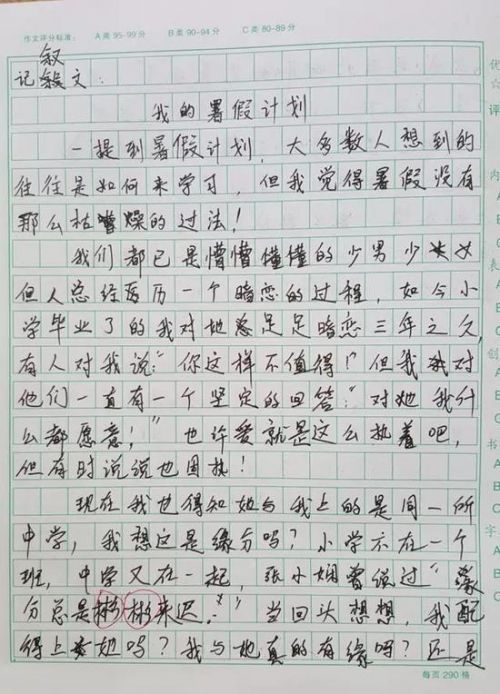 作文评分标准: A类 95-99分 B类 90-94分 C类 80-89分
叙
记叙文:
我的暑假计划
一提到暑假计划,大多数人想到的
往往是如何来学习,但我觉得暑假没有
那么枯燥的过法!
我们都已是懵懵懂懂的少男少女
但人总经历一个暗恋的过程,如今小
学毕业了的我对她足足暗恋三年之久,
有人对我说:“你这样不值得!”但我对
他们一直有一个坚定的回答:“对她我什
么都愿意!”也许爱就是这么执着吧,
但有时说说也固执!
现在我也得知她与我上的是同一所
中学,我想这是缘分吗?小学不在一个
班,中学又在一起,张小娴曾说过“缘
分总是彬彬来迟.”当回头想想,我配
得上她吗?我与她真的有缘吗?还是
每页290格
优
☆
评
内
A
B
表
A
创
A
书
A
字